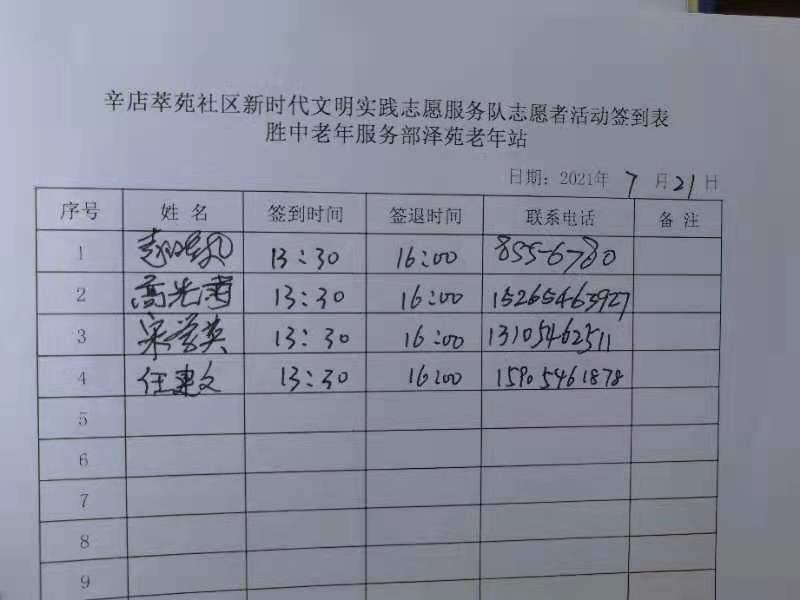 辛店萃苑社区新时代文明实践志愿服务队志愿者活动签到表
胜中老年服务部泽苑老年站
日期：2021年 7 月 21 日
序号 姓 名 签到时间 签退时间 联系电话 备 注
1 13:30 16:00 855-6780
2 13:30 16:00 15265463927
3 宋学英 13:30 16:00 13105462511
4 任建文 13:30 16:00 15905461878
5
6
7
8
9